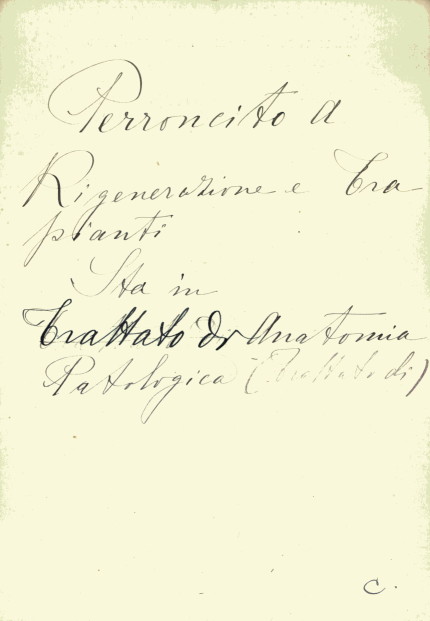 Perroncito A
Rigenerazione e Tra
pianti
Sta in
Trattato di Anatomia
Patologica (Trattato di)
C.